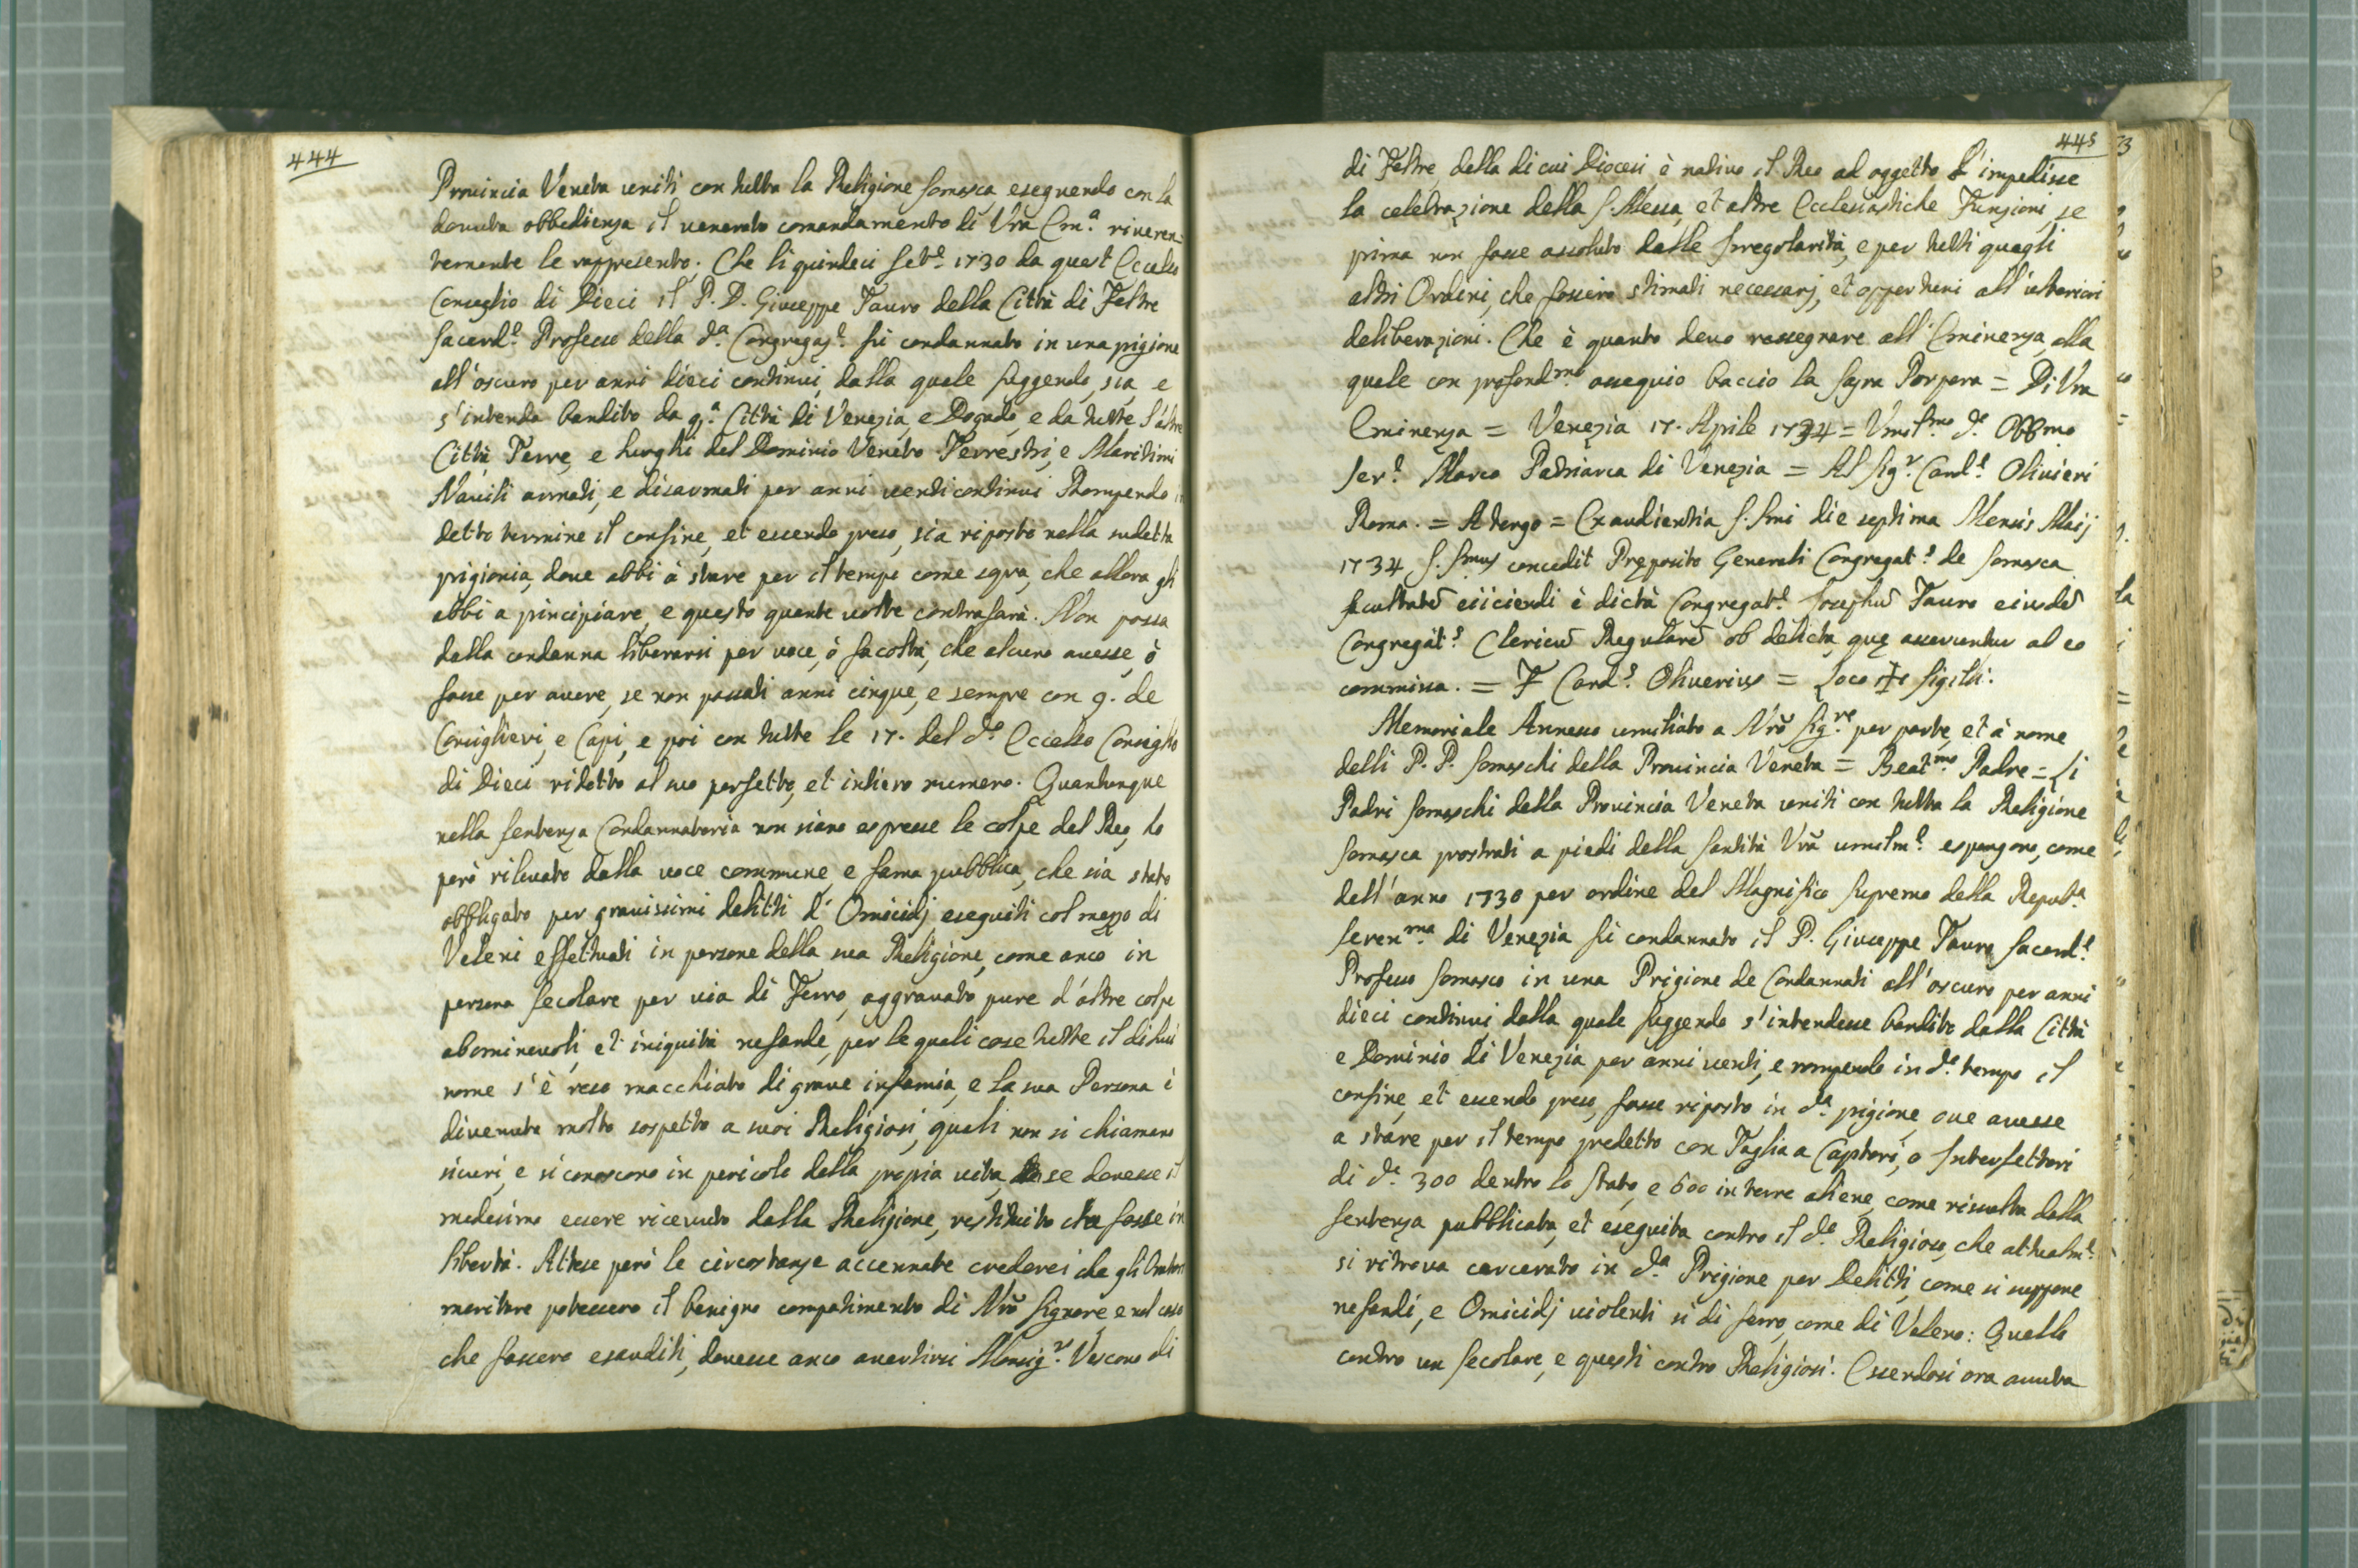 444
Provincia Veneta uniti con tutta la Religione somasca, eseguendo con la
dovuta obbedienza il venerato comandamento di Vra Em.ª riveren-
temente le rappresento. Che li quindeci Setᵉ 1730 da quest'Eccelso
Conseglio di Dieci il P. D. Giuseppe Tauro della Città di Feltre
Sacerd.ᵉ Professo della d.ª Congregaz.ᵉ fù condannato in una prigione
all'oscuro per anni dieci continui, dalla quale fuggendo, sia, e
s'intenda bandito da q.ª Città di Venezia, e Dogado, e da tutte l'altre
Città, Terre, e luoghi del Dominio Veneto Terrestri, e Maritimi
Navili armati, e disarmati per anni venti continui Rompendo
detto termine il confine, et essendo preso, sia riposto nella sudetta
prigionia, dove abbi à stare per il tempo come sopra, che allora gli
abbi a principiare, e questo quante volte contrafarà. Non possa
dalla condanna liberarsi per voce, ò facoltà, che alcuno avesse, ò
fosse per avere, se non passati anni cinque, e sempre con 9. de
Consiglieri, e Capi, e poi con tutte le 17. del d.ᵒ Eccelso Conseglio
di Dieci ridotto al suo perfetto, et intiero numero. Quantunque
nella sentenza Condannatoria non siano espresse le colpe del Reo, ho
però rilevato dalla voce commune, e fama pubblica, che sia stato
obbligato per gravissimi delitti d'Omicidj eseguiti col mezzo di
Veleni effettuati in persone della sua Religione, come anco in
persona secolare per via di Ferro, aggravato pure d'altre colpe
abominevoli, et iniquità nefande, per le quali cose tutte il di lui
nome s'è reso macchiato di grave infamia, e la sua Persona è
divenuta molto sospetta a suoi Religiosi, quali non si chiamano
sicuri, e si conoscono in pericolo della propria vita, se dovesse il
medesimo essere ricevuto dalla Religione, restituito che fosse in
libertà. Attese però le circostanze accennate crederei che gli Oratori
meritare potessero il benigno compatimento di Nr̃o Signore, e nel caso
che fossero esauditi, dovesse anco avertirsi Monsig.ʳ Vescovo di
445
di Feltre della di cui Diocesi è nativo il Reo ad oggetto l'impedisse
la celebrazione della S. Messa, et altre Ecclesiastiche Funzioni, se
prima non fosse assoluto dalle Irregolarità, e per tutti quegli
altri Ordini, che fossero stimati necessarj, et opportuni all'ulteriori
deliberazioni. Che è quanto devo rassegnare all'Eminenza, alla
quale con profond.ᵐᵒ ossequio baccio la sagra Porpora = Di Vra
Eminenza = Venezia 17. Aprile 1734 = Umilᵐᵒ d.ᵉ Obbmo
Ser.ᵉ Marco Patriarca di Venezia = Al Sig.ʳ Card.ᵉ Olivieri
Roma. = A tergo = Ex audientia S. Smi die septima Mensis Maij
1734 S. Smus concedit Pręposito Generali Congregat.ˢ de Somasca
facultatẽ eiiciendi è dictà Congregat.ᵉ Josephũ Tauro eiusdẽ
Congregat.ˢ Clericũ Regularẽ ob delicta, quę asseruntur ab eo
commissa. = F Card.ˢ Oliverius = Loco ✠ Sigilli.
Memoriale Annesso umiliato a Nr̃o Sig.ʳᵉ per parte, et à nome
delli P. P. Somaschi della Provincia Veneta = Beat.ᵐᵒ Padre = Li
Padri Somaschi della Provincia Veneta uniti con tutta la Religione
somasca prostrati a piedi della Santità Vr̃a umilm.ᵉ espongono, come
dell'anno 1730 per ordine del Magnifico Supremo della Repub.ª
Seren.ᵐᵃ di Venezia fù condannato il P. Giuseppe Tauro Sacerd.ᵉ
Professo Somasco in una Prigione de Condannati all'oscuro per anni
dieci continui, dalla quale fuggendo s'intendesse bandito dalla Città
e Dominio di Venezia per anni venti, e rompendo in d.ᵒ tempo il
confine, et essendo preso, fosse riposto in d.ª prigione, ove avesse
a stare per il tempo predetto con Taglia a Captori, o Interfettori
di d.ᵗ 300 dentro lo Stato, e 600 in terre aliene, come risulta dalla
sentenza pubblicata, et eseguita contro il d.ᵒ Religioso, che attualm.ᵉ
si ritrova carcerato in d.ª Prigione per Delitti, come si suppone
nefandi, e Omicidj violenti si di ferro, come di Veleno: Quello
contro un secolare, e questi contro Religiosi. Essendosi ora avuta